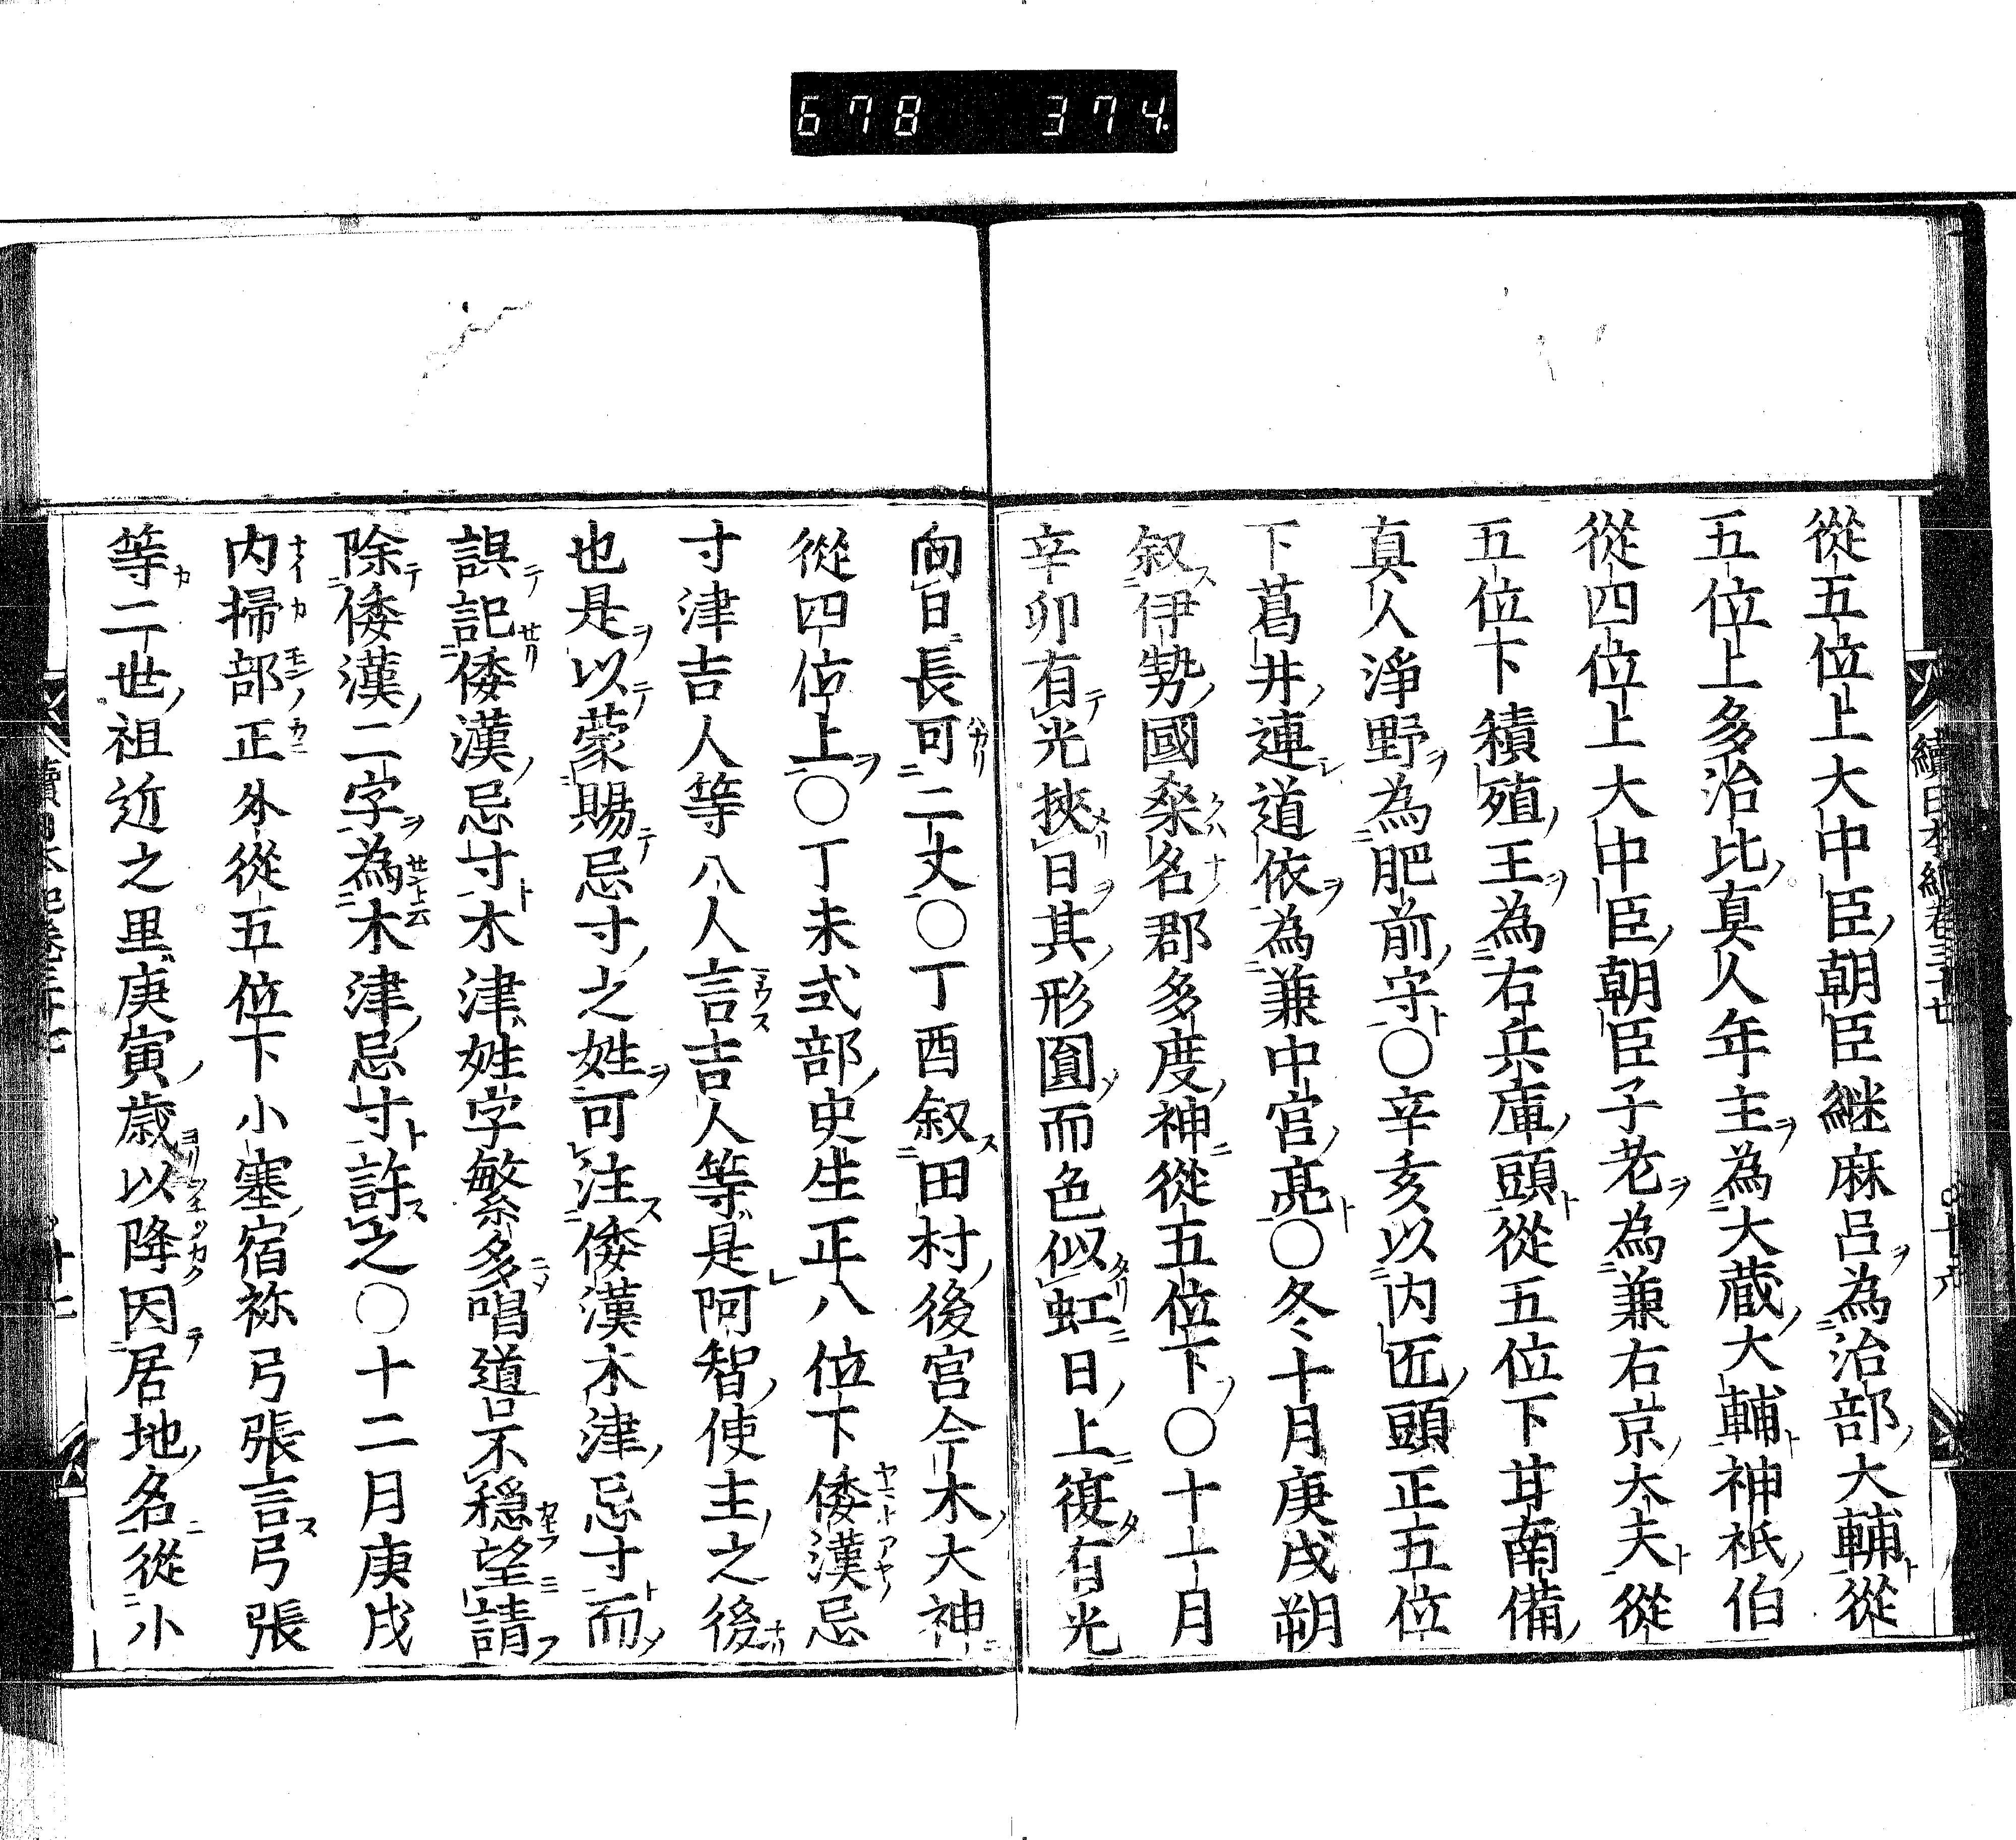 678 374.
續日本紀卷三十七 〇十六
從五位上大中臣朝臣継麻呂為治部大輔從
五位上多治比真人年主為大蔵大輔神祇伯
從四位上大中臣朝臣子老為兼右京大夫從
五位下積殖王為右兵庫頭從五位下甘南備
真人淨野為肥前守〇辛亥以内匠頭正五位
下葛井連道依為兼中宮亮〇冬十月庚戌朔
叙伊勢國桑名郡多度神從五位下〇十一月
辛卯有光挾日其形圓而色似虹日上復有光
向日長可二丈〇丁酉叙田村後宮今木大神
從四位上〇丁未式部史生正八位下倭漢忌
寸津吉人等八人言吉人等是阿智使主之後
也是以蒙賜忌寸之姓可注倭漢木津忌寸而
誤記倭漢忌寸木津姓字繁多唱道不穏望請
除倭漢二字為木津忌寸許之〇十二月庚戌
内掃部正外從五位下小塞宿祢弓張言弓張
等二世祖近之里庚寅歳以降因居地名從小